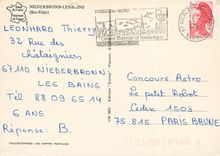 NIEDERBRONN-LES-BAINS
(Bas-Rhin)
VOSGES du NORD
LEONHARD Thierry
32 Rue des
châtaigniers
67110 NIEDERBRONN
LES BAINS
Tél 88 09 65 14
6 ans
Réponse : B.
Concours Astro
Le petit Robot
Cedex 1503
75 815 PARIS BRUNE